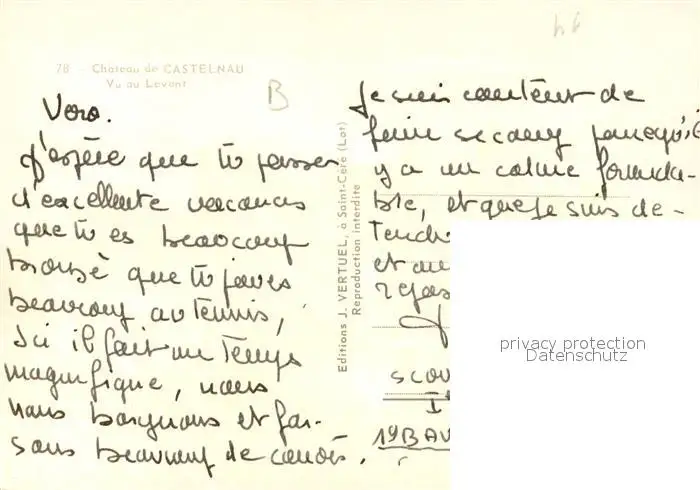 78 - Chateau de CASTELNAU
Vu au Levant
B
Vero.
J'espère que tu passes
d'excellente vacances
que tu es beaucoup
bronzé que tu joues
beaucoup au tennis,
Ici il fait un temps
magnifique, nous
nous baignons et fai-
sons beaucoup de canoës.
Editions J. VERTUEL, à Saint-Céré (Lot)
Reproduction interdite
Je suis content de
faire se camp parcequ'il
y a un calme formida-
ble, et que je suis dé-
tendu
et
scou
19 B AV
privacy protection
Datenschutz